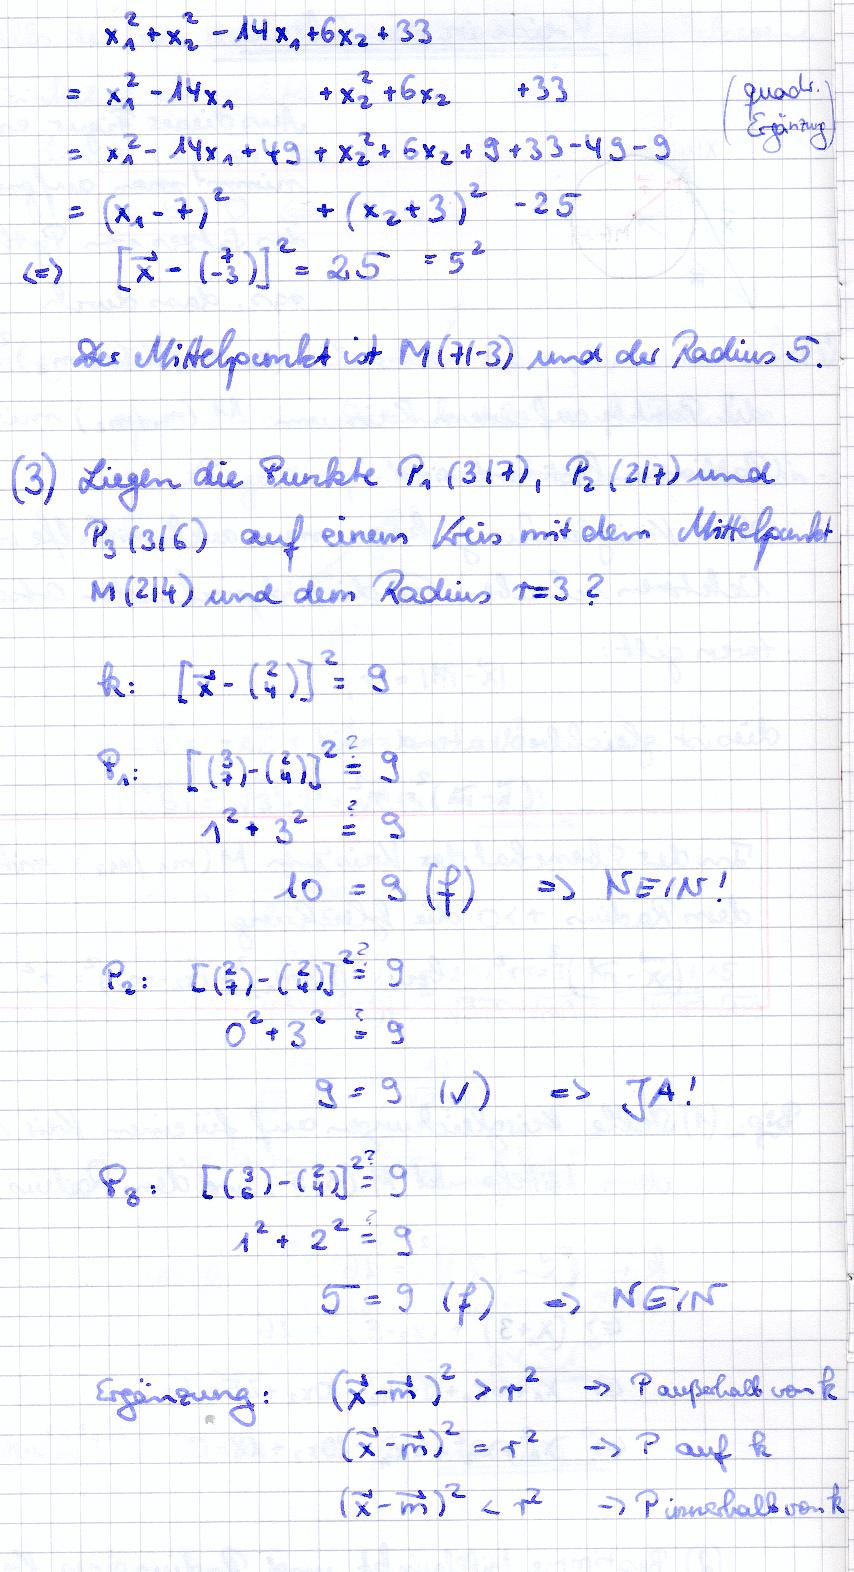 x₁² + x₂² - 14x₁ + 6x₂ + 33
= x₁² - 14x₁ + x₂² + 6x₂ + 33 (quadr. Ergänzung)
= x₁² - 14x₁ + 49 + x₂² + 6x₂ + 9 + 33 - 49 - 9
= (x₁ - 7)² + (x₂ + 3)² - 25
<=> [x⃗ - (7 -3)]² = 25 = 5²
Der Mittelpunkt ist M(7|-3) und der Radius 5.
(3) Liegen die Punkte P₁(3|7), P₂(2|7) und
P₃(3|6) auf einem Kreis mit dem Mittelpunkt
M(2|4) und dem Radius r=3?
k: [x⃗ - (2 4)]² = 9
P₁: [(3 7) - (2 4)]² ≟ 9
1² + 3² ≟ 9
10 = 9 (f) => NEIN!
P₂: [(2 7) - (2 4)]² ≟ 9
0² + 3² ≟ 9
9 = 9 (√) => JA!
P₃: [(3 6) - (2 4)]² ≟ 9
1² + 2² ≟ 9
5 = 9 (f) => NEIN
Ergänzung: (x⃗ - m⃗)² > r² -> P außerhalb von k
(x⃗ - m⃗)² = r² -> P auf k
(x⃗ - m⃗)² < r² -> P innerhalb von k